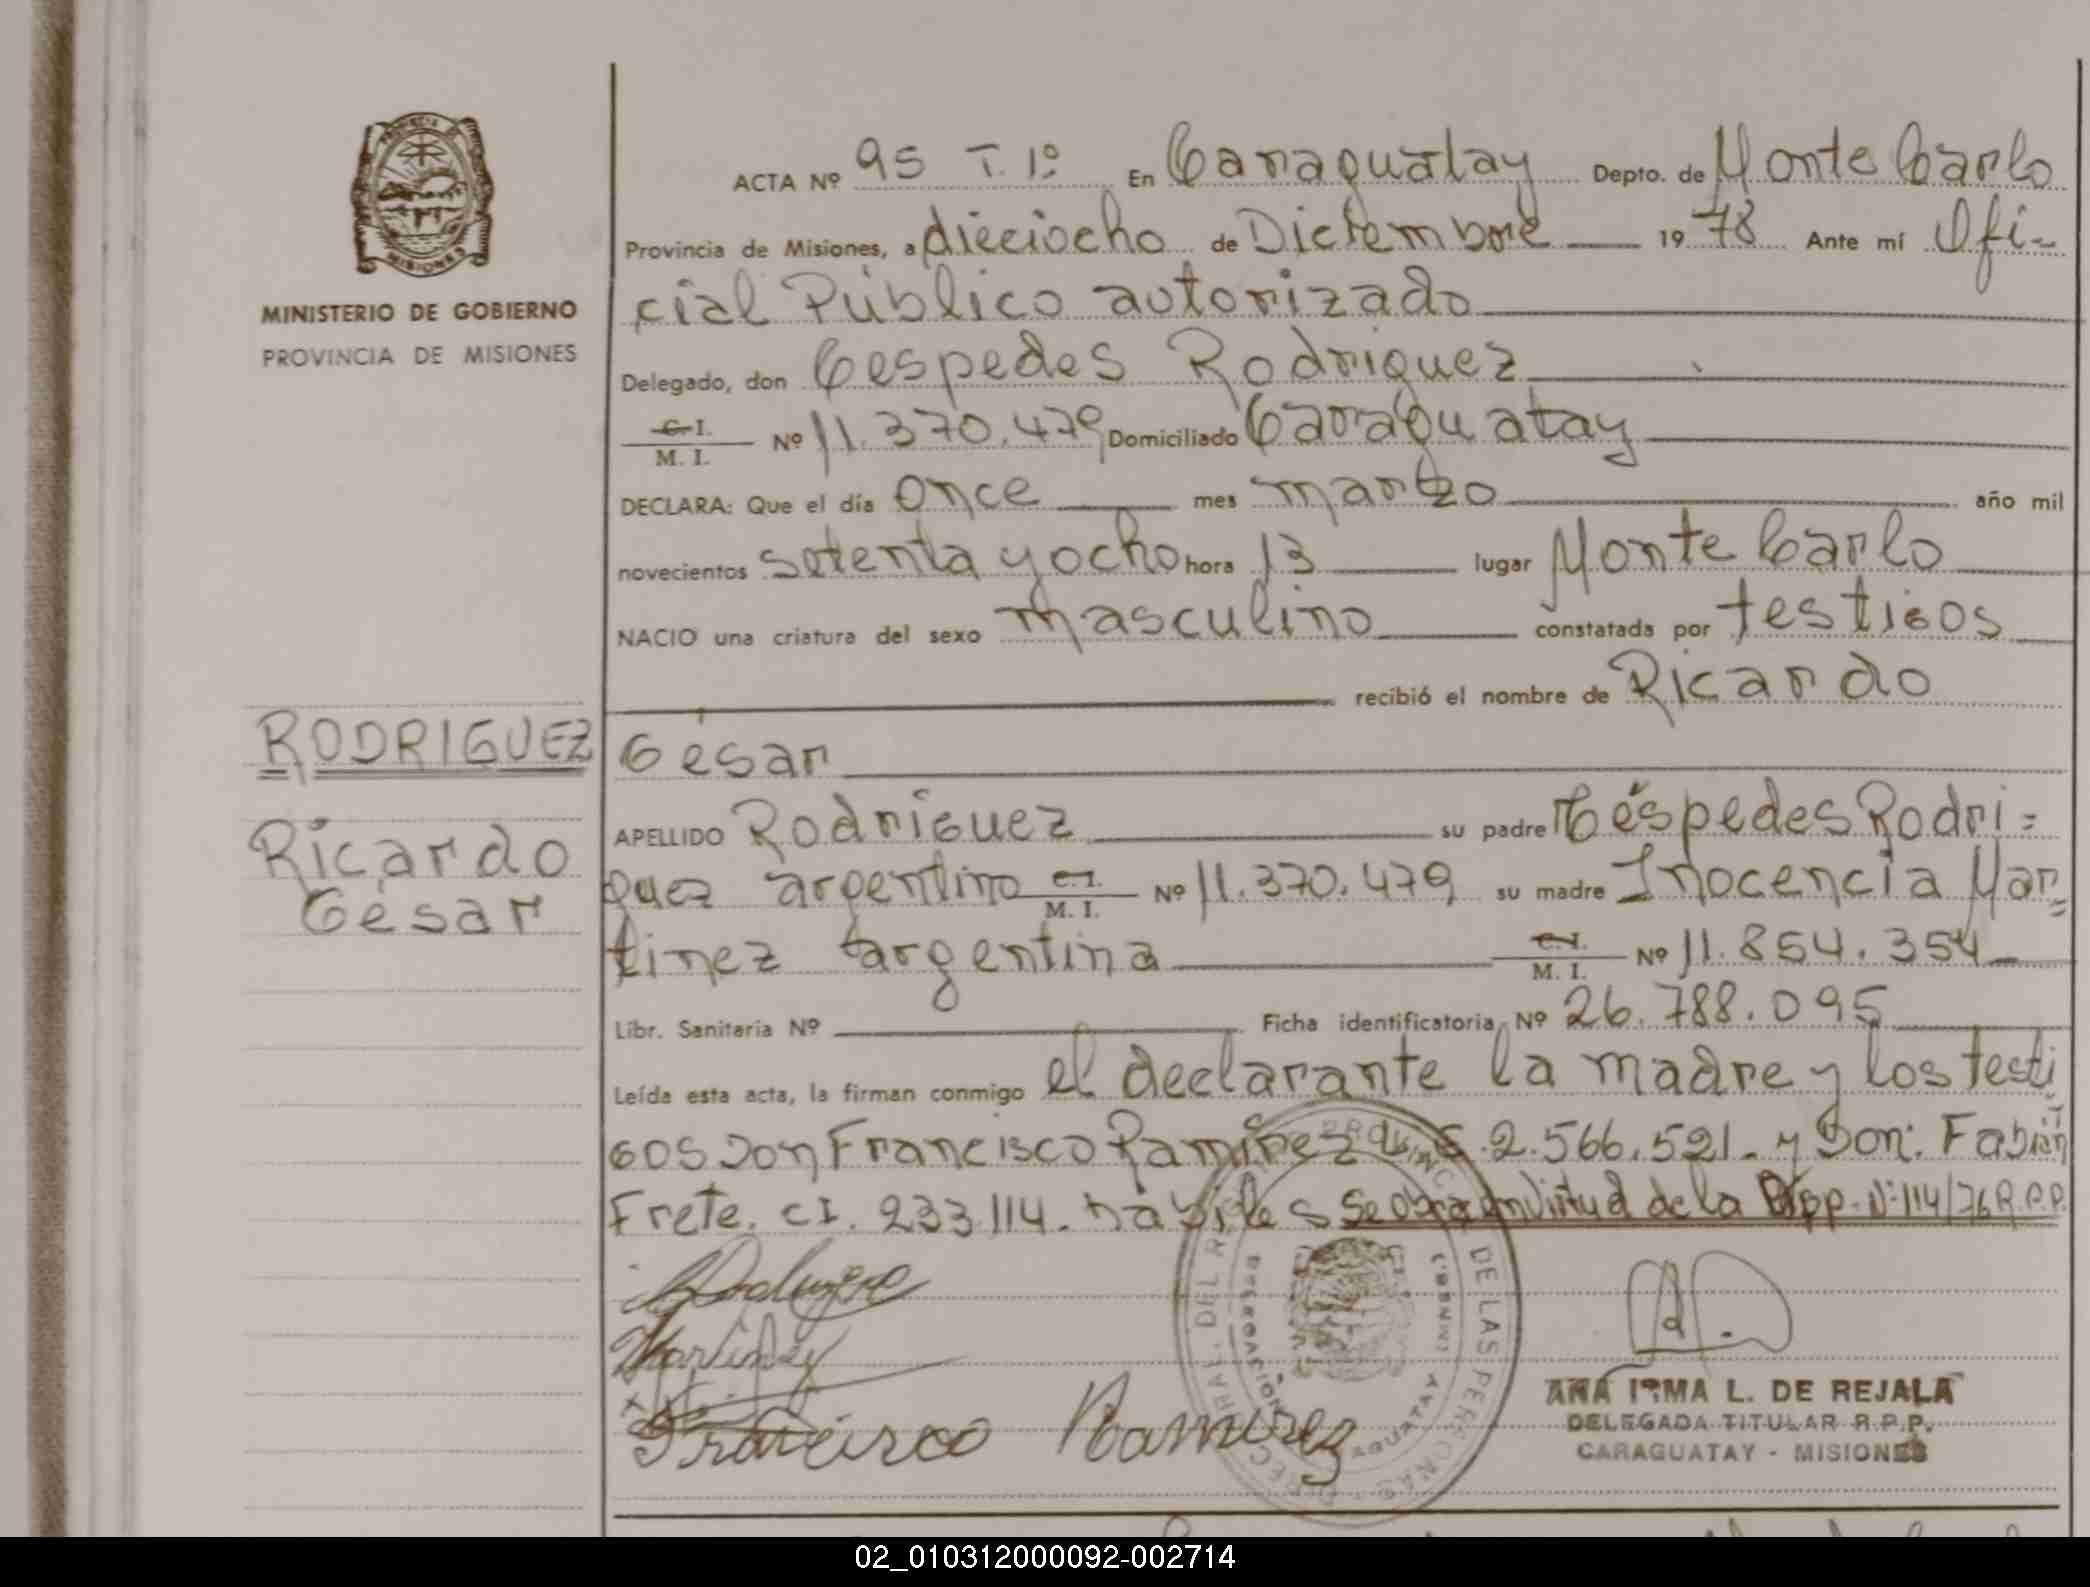 PROVINCIA DE
MISIONES
MINISTERIO DE GOBIERNO
PROVINCIA DE MISIONES
RODRIGUEZ
Ricardo
César
ACTA Nº 95 T. 1º En Caraguatay Depto. de Monte Carlo
Provincia de Misiones, a dieciocho de Diciembre 1978 Ante mí Ofi-
cial Público autorizado
Delegado, don Cespedes Rodriguez
C. I. / M. I. Nº 11.370.479 Domiciliado Caraguatay
DECLARA: Que el día once mes marzo año mil
novecientos setenta y ocho hora 13 lugar Monte Carlo
NACIO una criatura del sexo masculino constatada por testigos
recibió el nombre de Ricardo
Cesar
APELLIDO Rodriguez su padre Céspedes Rodri=
guez argentino C. I. / M. I. Nº 11.370.479 su madre Inocencia Mar=
tinez argentina C. I. / M. I. Nº 11.854.354
Libr. Sanitaria Nº Ficha identificatoria Nº 26.788.095
Leída esta acta, la firman conmigo el declarante la madre y los testi
gos Don Francisco Ramirez 2.566.521. y Don: Fabián
Frete. CI. 233114. hábiles Se obra en virtud de la Disp. Nº 114/76 R.P.P.
Rodriguez
Martinez
Francisco Ramirez
DE LAS PERSONAS
DELEGACION
CARAGUATAY
ANA IRMA L. DE REJALA
DELEGADA TITULAR R.P.P.
CARAGUATAY - MISIONES
02_010312000092-002714